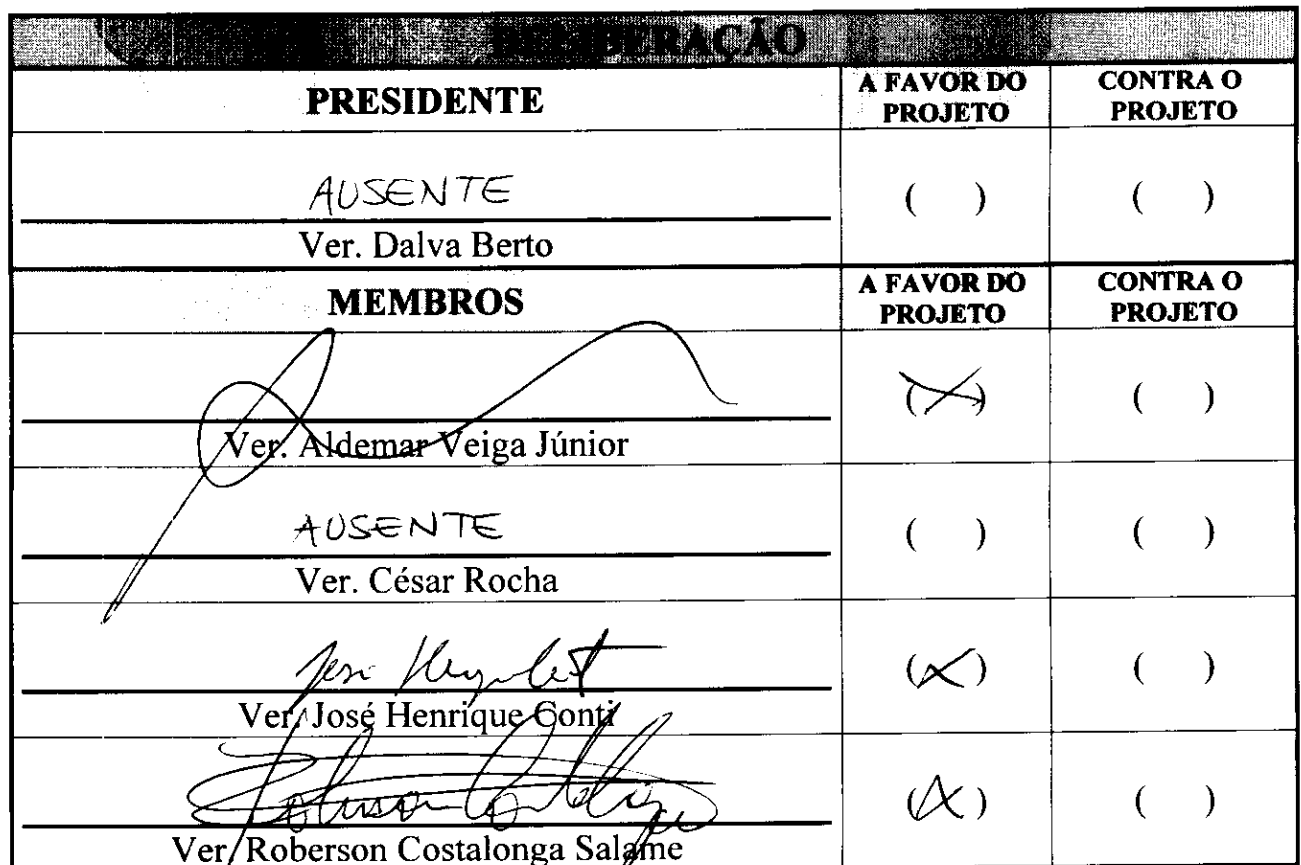 DELIBERAÇÃO
PRESIDENTE
A FAVOR DO PROJETO
CONTRA O PROJETO
AUSENTE
( )
( )
Ver. Dalva Berto
MEMBROS
A FAVOR DO PROJETO
CONTRA O PROJETO
(X)
( )
Ver. Aldemar Veiga Júnior
AUSENTE
( )
( )
Ver. César Rocha
(X)
( )
Ver. José Henrique Conti
(X)
( )
Ver. Roberson Costalonga Salame